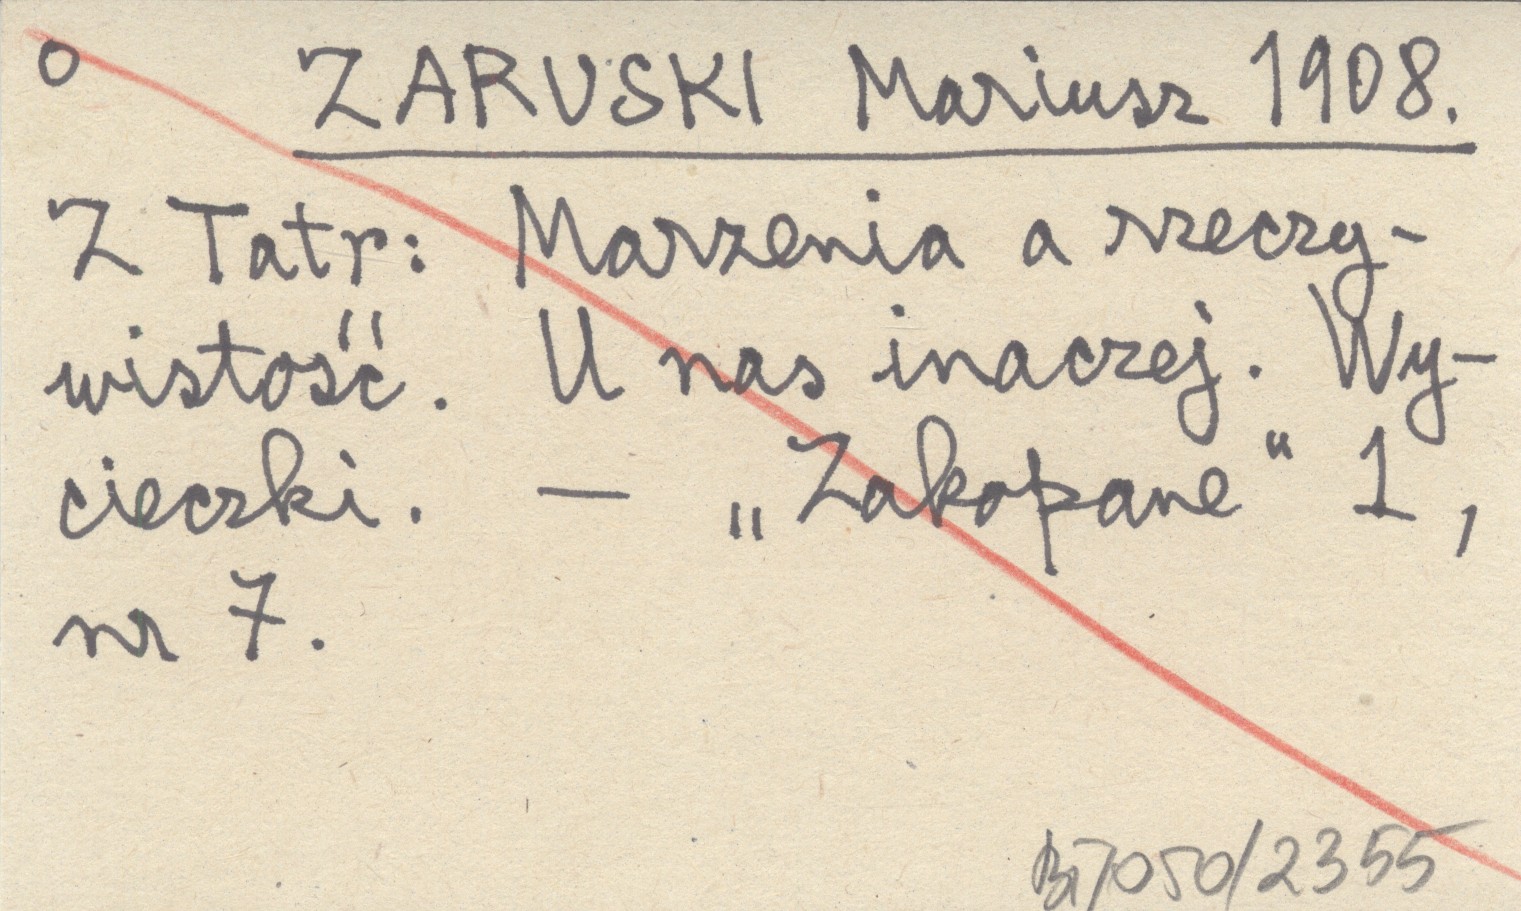 o ZARUSKI Mariusz 1908.
Z Tatr: Marzenia a rzeczy-
wistość. U nas inaczej. Wy-
cieczki. — „Zakopane" 1,
nr 7.
BT/050/2355